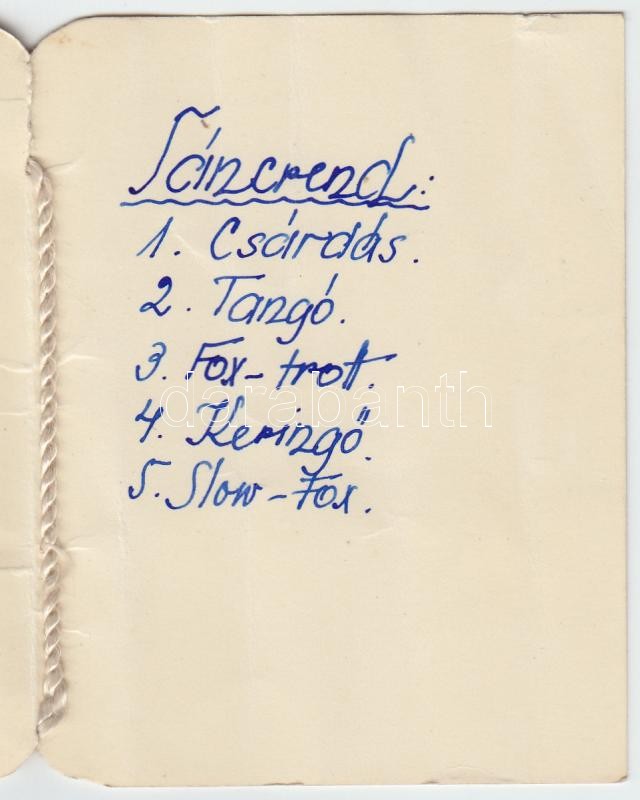 Táncrend:
1. Csárdás.
2. Tangó.
3. Fox-trott.
darabanth
4. Keringő.
5. Slow-Fox.